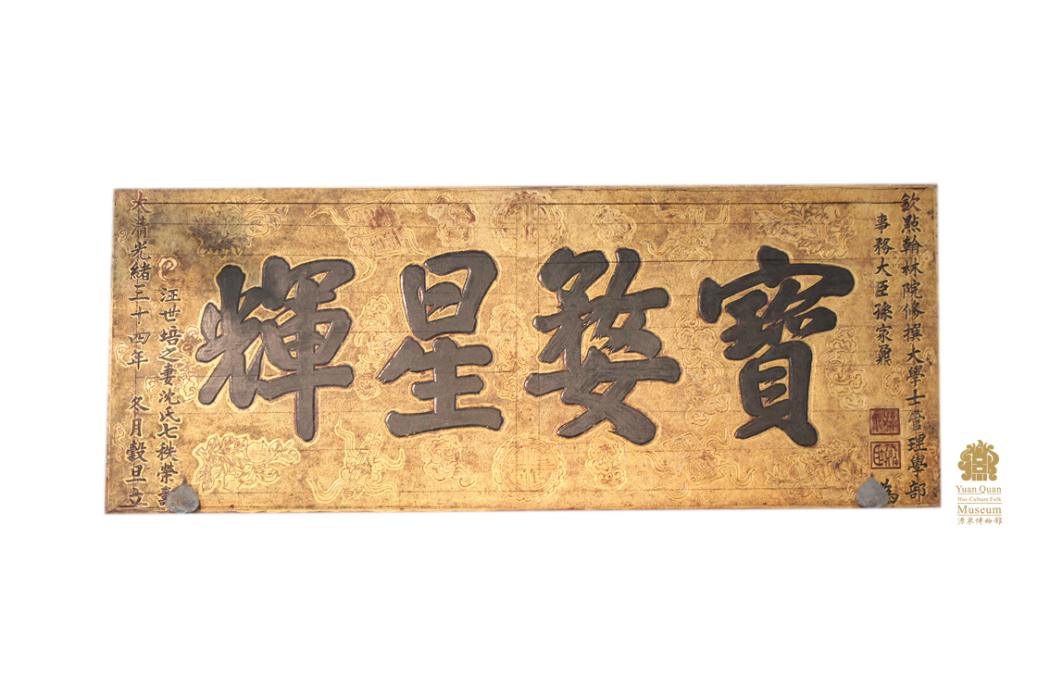 欽點翰林院修撰大學士管理學部
事務大臣孫家鼐
為
寶婺星輝
汪世培之妻沈氏七秩榮壽
大清光緒三十四年 冬月穀旦立
Yuan Quan
Hui-Culture Folk
Museum
源泉博物館